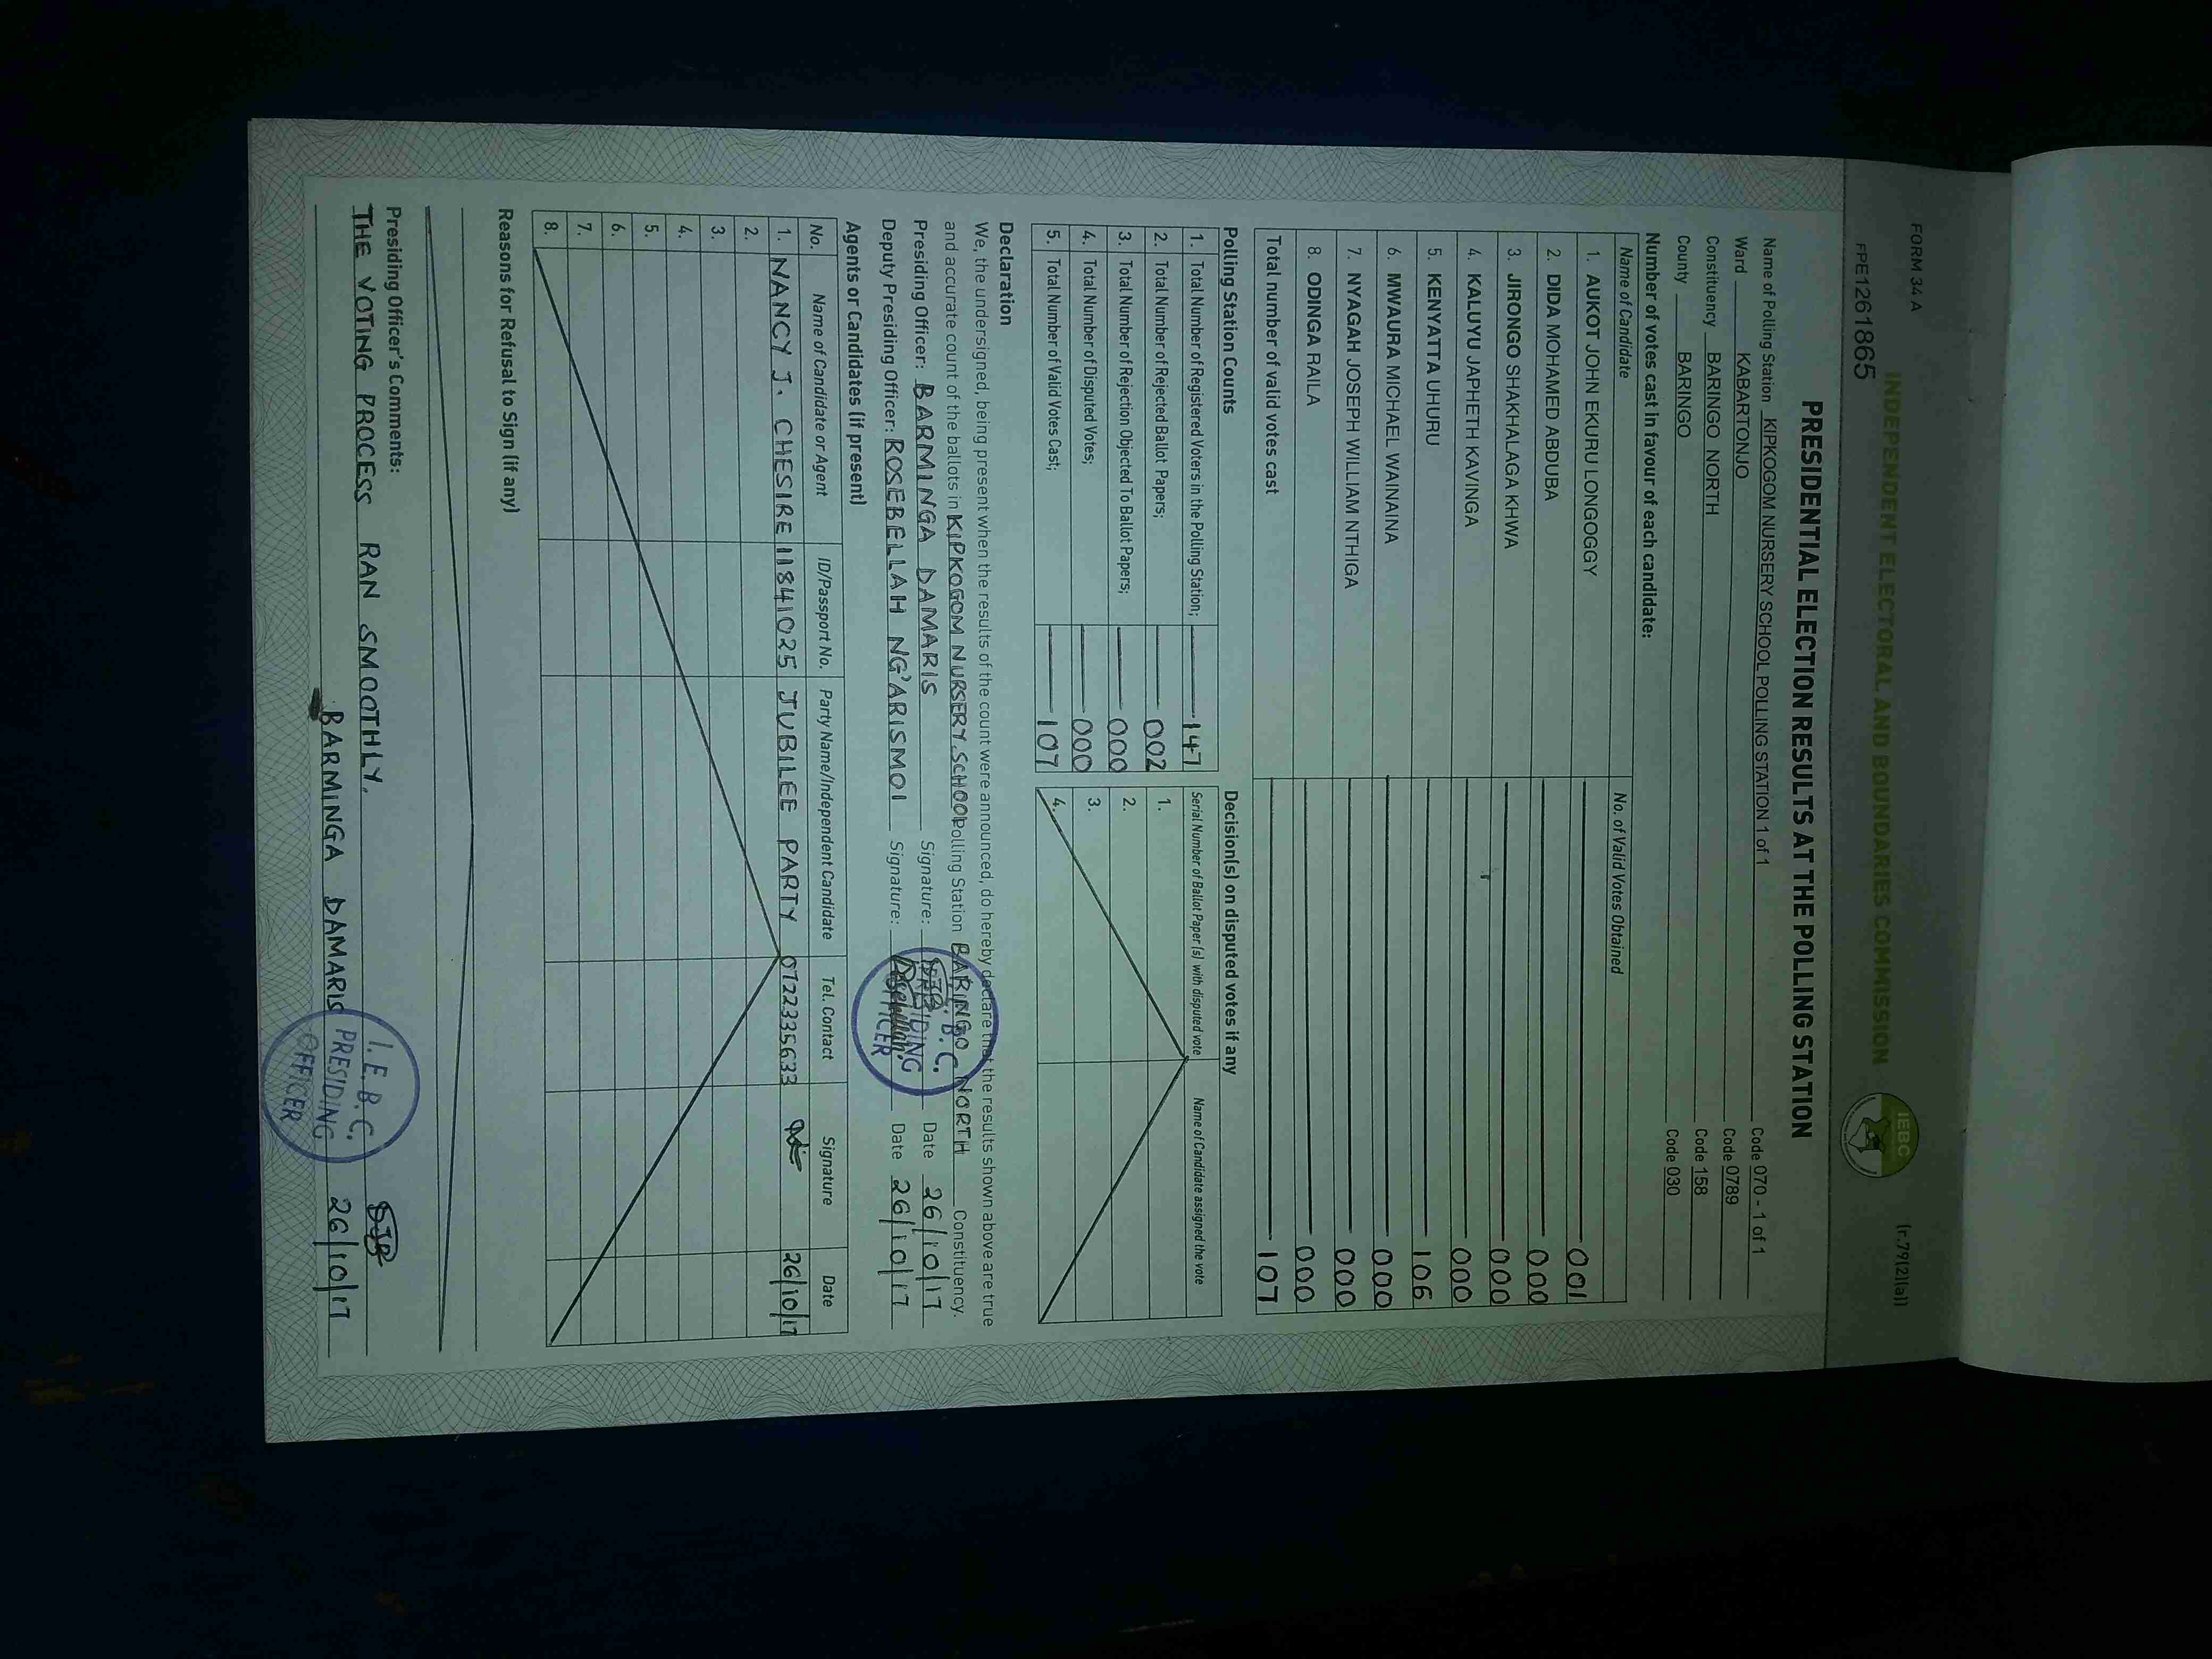 FORM 34 A
(r.79(2)(a))
FPE1261865
INDEPENDENT ELECTORAL AND BOUNDARIES COMMISSION
IEBC
PRESIDENTIAL ELECTION RESULTS AT THE POLLING STATION
Name of Polling Station KIPKOGOM NURSERY SCHOOL POLLING STATION 1 of 1 Code 070 - 1 of 1
Ward KABARTONJO Code 0789
Constituency BARINGO NORTH Code 158
County BARINGO Code 030
Number of votes cast in favour of each candidate:
Name of Candidate No. of Valid Votes Obtained
1. AUKOT JOHN EKURU LONGOGGY 001
2. DIDA MOHAMED ABDUBA 000
3. JIRONGO SHAKHALAGA KHWA 000
4. KALUYU JAPHETH KAVINGA 000
5. KENYATTA UHURU 106
6. MWAURA MICHAEL WAINAINA 000
7. NYAGAH JOSEPH WILLIAM NTHIGA 000
8. ODINGA RAILA 000
Total number of valid votes cast 107
Polling Station Counts
1. Total Number of Registered Voters in the Polling Station; 147
2. Total Number of Rejected Ballot Papers; 002
3. Total Number of Rejection Objected To Ballot Papers; 000
4. Total Number of Disputed Votes; 000
5. Total Number of Valid Votes Cast; 107
Decision(s) on disputed votes if any
Serial Number of Ballot Paper (s) with disputed vote Name of Candidate assigned the vote
1.
2.
3.
4.
Declaration
We, the undersigned, being present when the results of the count were announced, do hereby declare that the results shown above are true
and accurate count of the ballots in KIPKOGOM NURSERY SCHOOL Polling Station BARINGO NORTH Constituency.
Presiding Officer: BARMINGA DAMARIS Signature: Date 26/10/17
Deputy Presiding Officer: ROSEBELLAH NG'ARISMOI Signature: Date 26/10/17
I.E.B.C.
PRESIDING
OFFICER
Agents or Candidates (if present)
No. Name of Candidate or Agent ID/Passport No. Party Name/Independent Candidate Tel. Contact Signature Date
1. NANCY J. CHESIRE 11841025 JUBILEE PARTY 0722335633 26/10/17
2.
3.
4.
5.
6.
7.
8.
Reasons for Refusal to Sign (if any)
Presiding Officer's Comments:
THE VOTING PROCESS RAN SMOOTHLY.
BARMINGA DAMARIS 26/10/17
I.E.B.C.
PRESIDING
OFFICER